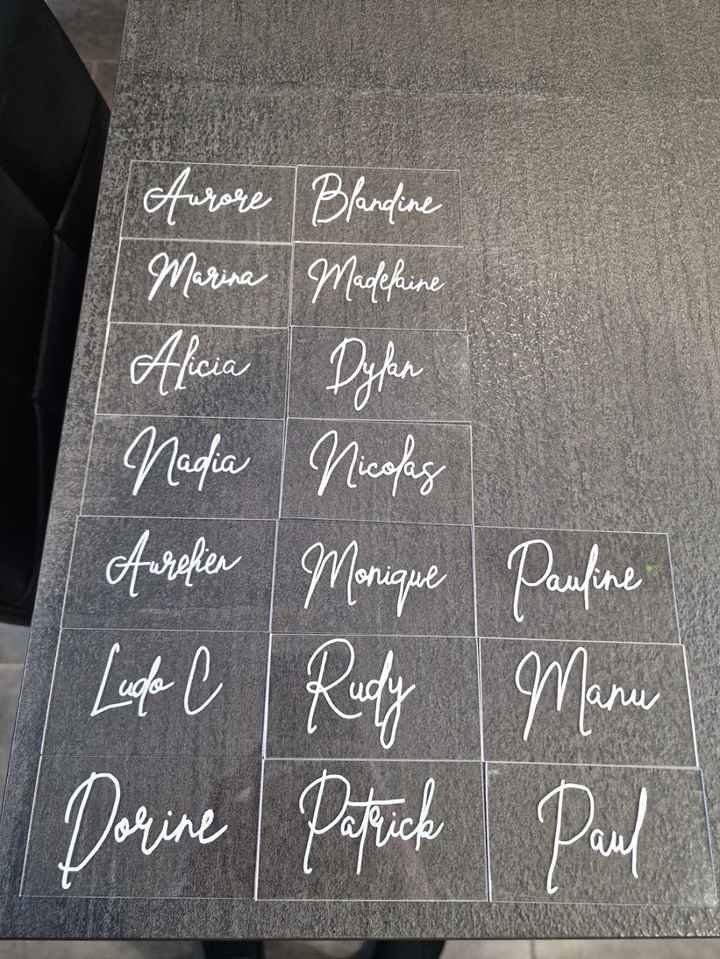 Aurore Blandine
Marina Madelaine
Alicia Dylan
Nadia Nicolas
Aurelien Monique Pauline
Ludo C Rudy Manu
Dorine Patrick Paul